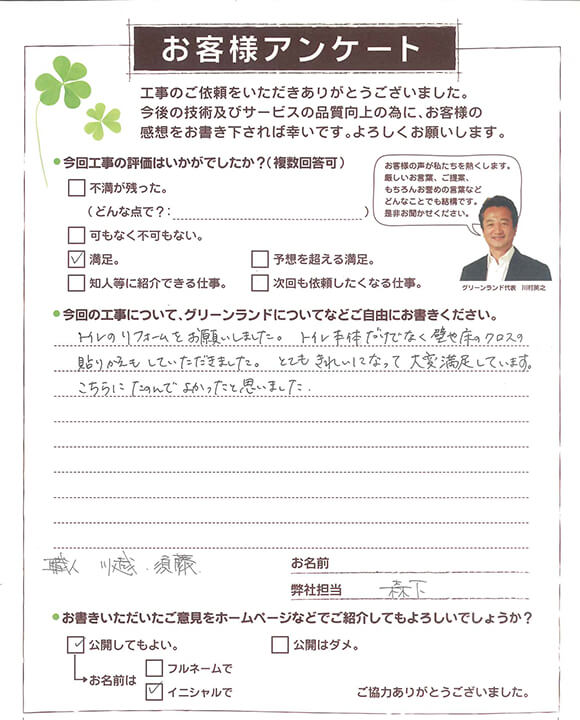 お客様アンケート
工事のご依頼をいただきありがとうございました。
今後の技術及びサービスの品質向上の為に、お客様の
感想をお書き下されば幸いです。よろしくお願いします。
今回工事の評価はいかがでしたか?(複数回答可)
不満が残った。
(どんな点で?: )
可もなく不可もない。
満足。 予想を超える満足。
知人等に紹介できる仕事。 次回も依頼したくなる仕事。
お客様の声が私たちを熱くします。
厳しいお言葉、ご提案、
もちろんお誉めの言葉など
どんなことでも結構です。
是非お聞かせください。
グリーンランド代表 川村英之
今回の工事について、グリーンランドについてなどご自由にお書きください。
トイレのリフォームをお願いしました。トイレ本体だけでなく壁や床のクロスの
貼りかえもしていただきました。とてもきれいになって大変満足しています。
こちらにたのんでよかったと思いました。
職人 川越・須藤
お名前
弊社担当 森下
お書きいただいたご意見をホームページなどでご紹介してもよろしいでしょうか?
公開してもよい。 公開はダメ。
お名前は フルネームで
イニシャルで
ご協力ありがとうございました。